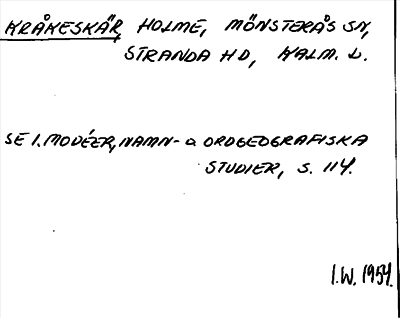 KRÅKESKÄR, HOLME, MÖNSTERÅS SN,
STRANDA HD, KALM. L.
SE I. MODÉER, NAMN- O. ORDGEOGRAFISKA
STUDIER, S. 114.
I.W. 1954.